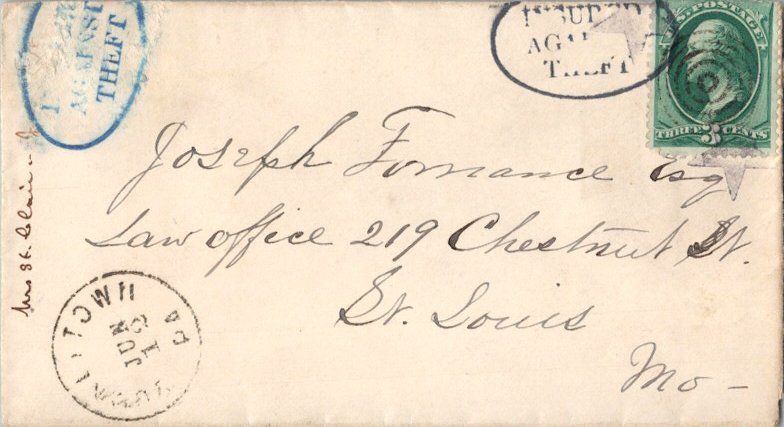 INSURED
AGAINST
THEFT
INSURED
AGAINST
THEFT
U.S. POSTAGE
THREE 3 CENTS
Joseph Fornance Esq
Law office 219 Chestnut St.
St. Louis
Mo -
Mrs St. Clair
TOWN PA
JUN